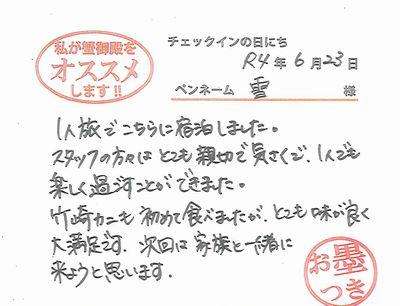 私が蟹御殿を
オススメ
します!!
チェックインの日にち
R4年6月23日
ペンネーム 雪 様
1人旅でこちらに宿泊しました。
スタッフの方々はとても親切で気さくで、1人でも
楽しく過ごすことができました。
竹崎カニも初めて食べましたが、とても味が良く
大満足です。次回は家族と一緒に
来ようと思います。
お墨
つき